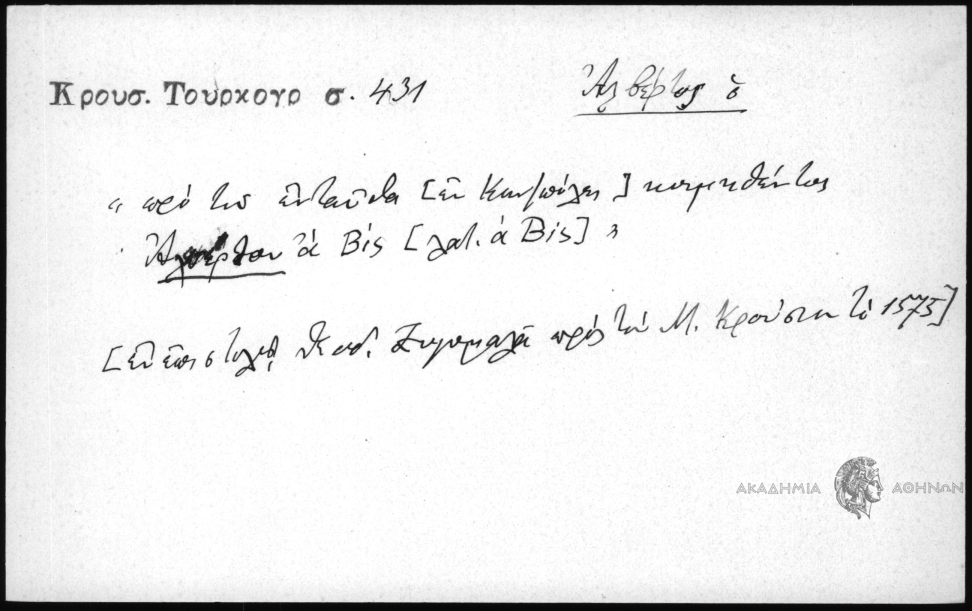 Κρουσ. Τουρκογρ σ. 431
Ἀλβέρτος ὁ
" πρὸ τοῦ ἐνταῦθα [ἐν Κων/πόλει] κοιμηθέντος
Ἀλπέρτου ἀ Βίς [λατ. ἀ Βίς] "
[ἐν ἐπιστολῇ Θεοδ. Ζυγομαλᾶ πρὸς τὸν Μ. Κρούσιον τῷ 1575]
ΑΚΑΔΗΜΙΑ ΑΘΗΝΩΝ